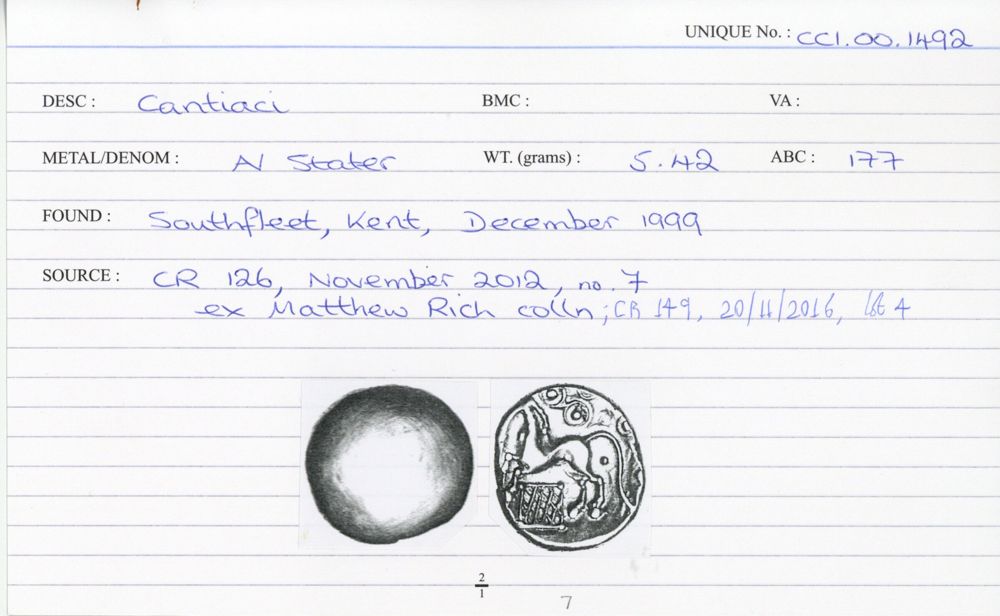 UNIQUE No. : CCI.00.1492
DESC : Cantiaci BMC : VA :
METAL/DENOM : AV Stater WT. (grams) : 5.42 ABC : 177
FOUND : Southfleet, Kent, December 1999
SOURCE : CR 126, November 2012, no. 7
ex Matthew Rich colln; CR 149, 20/11/2016, lot 4
2
1
7